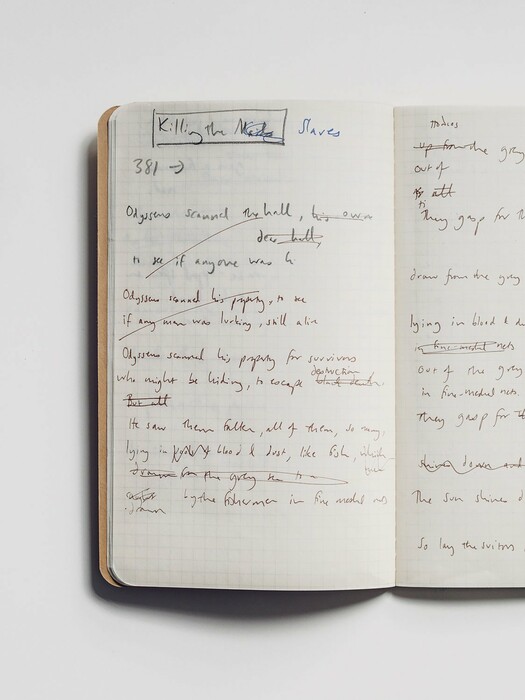 Killing the Maids Slaves
381 →
Odysseus scanned the hall, his own
dear hall,
to see if anyone was h
Odysseus scanned his property, to see
if any man was lurking, still alive
Odysseus scanned his property for survivors
destruction
who might be hiding, to escape black death
But all
He saw them fallen, all of them, so many,
lying in blood & dust, like fish, which
drawn the grey sea to a
by the fishermen in fine meshed nets
drawn
up from the grey
out of
all
They gasp for th
draw from the grey
lying in blood & du
in fine meshed nets
out of the grey
in fine-meshed nets.
They gasp for th
shines down and
The sun shines d
So lay the suitors